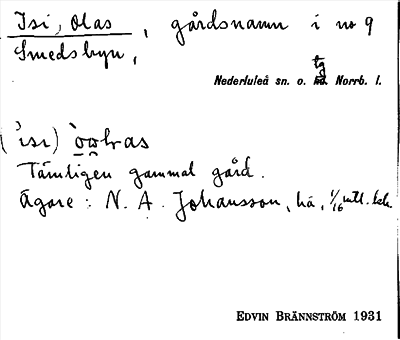 Isi, Olas, gårdsnamn i no 9
Smedsbyn,
tg
Nederluleå sn. o. hd. Norrb. l.
Tämligen gammal gård.
Ägare: N. A. Johansson, hä, 1/16 mtl.
EDVIN BRÄNNSTRÖM 1931